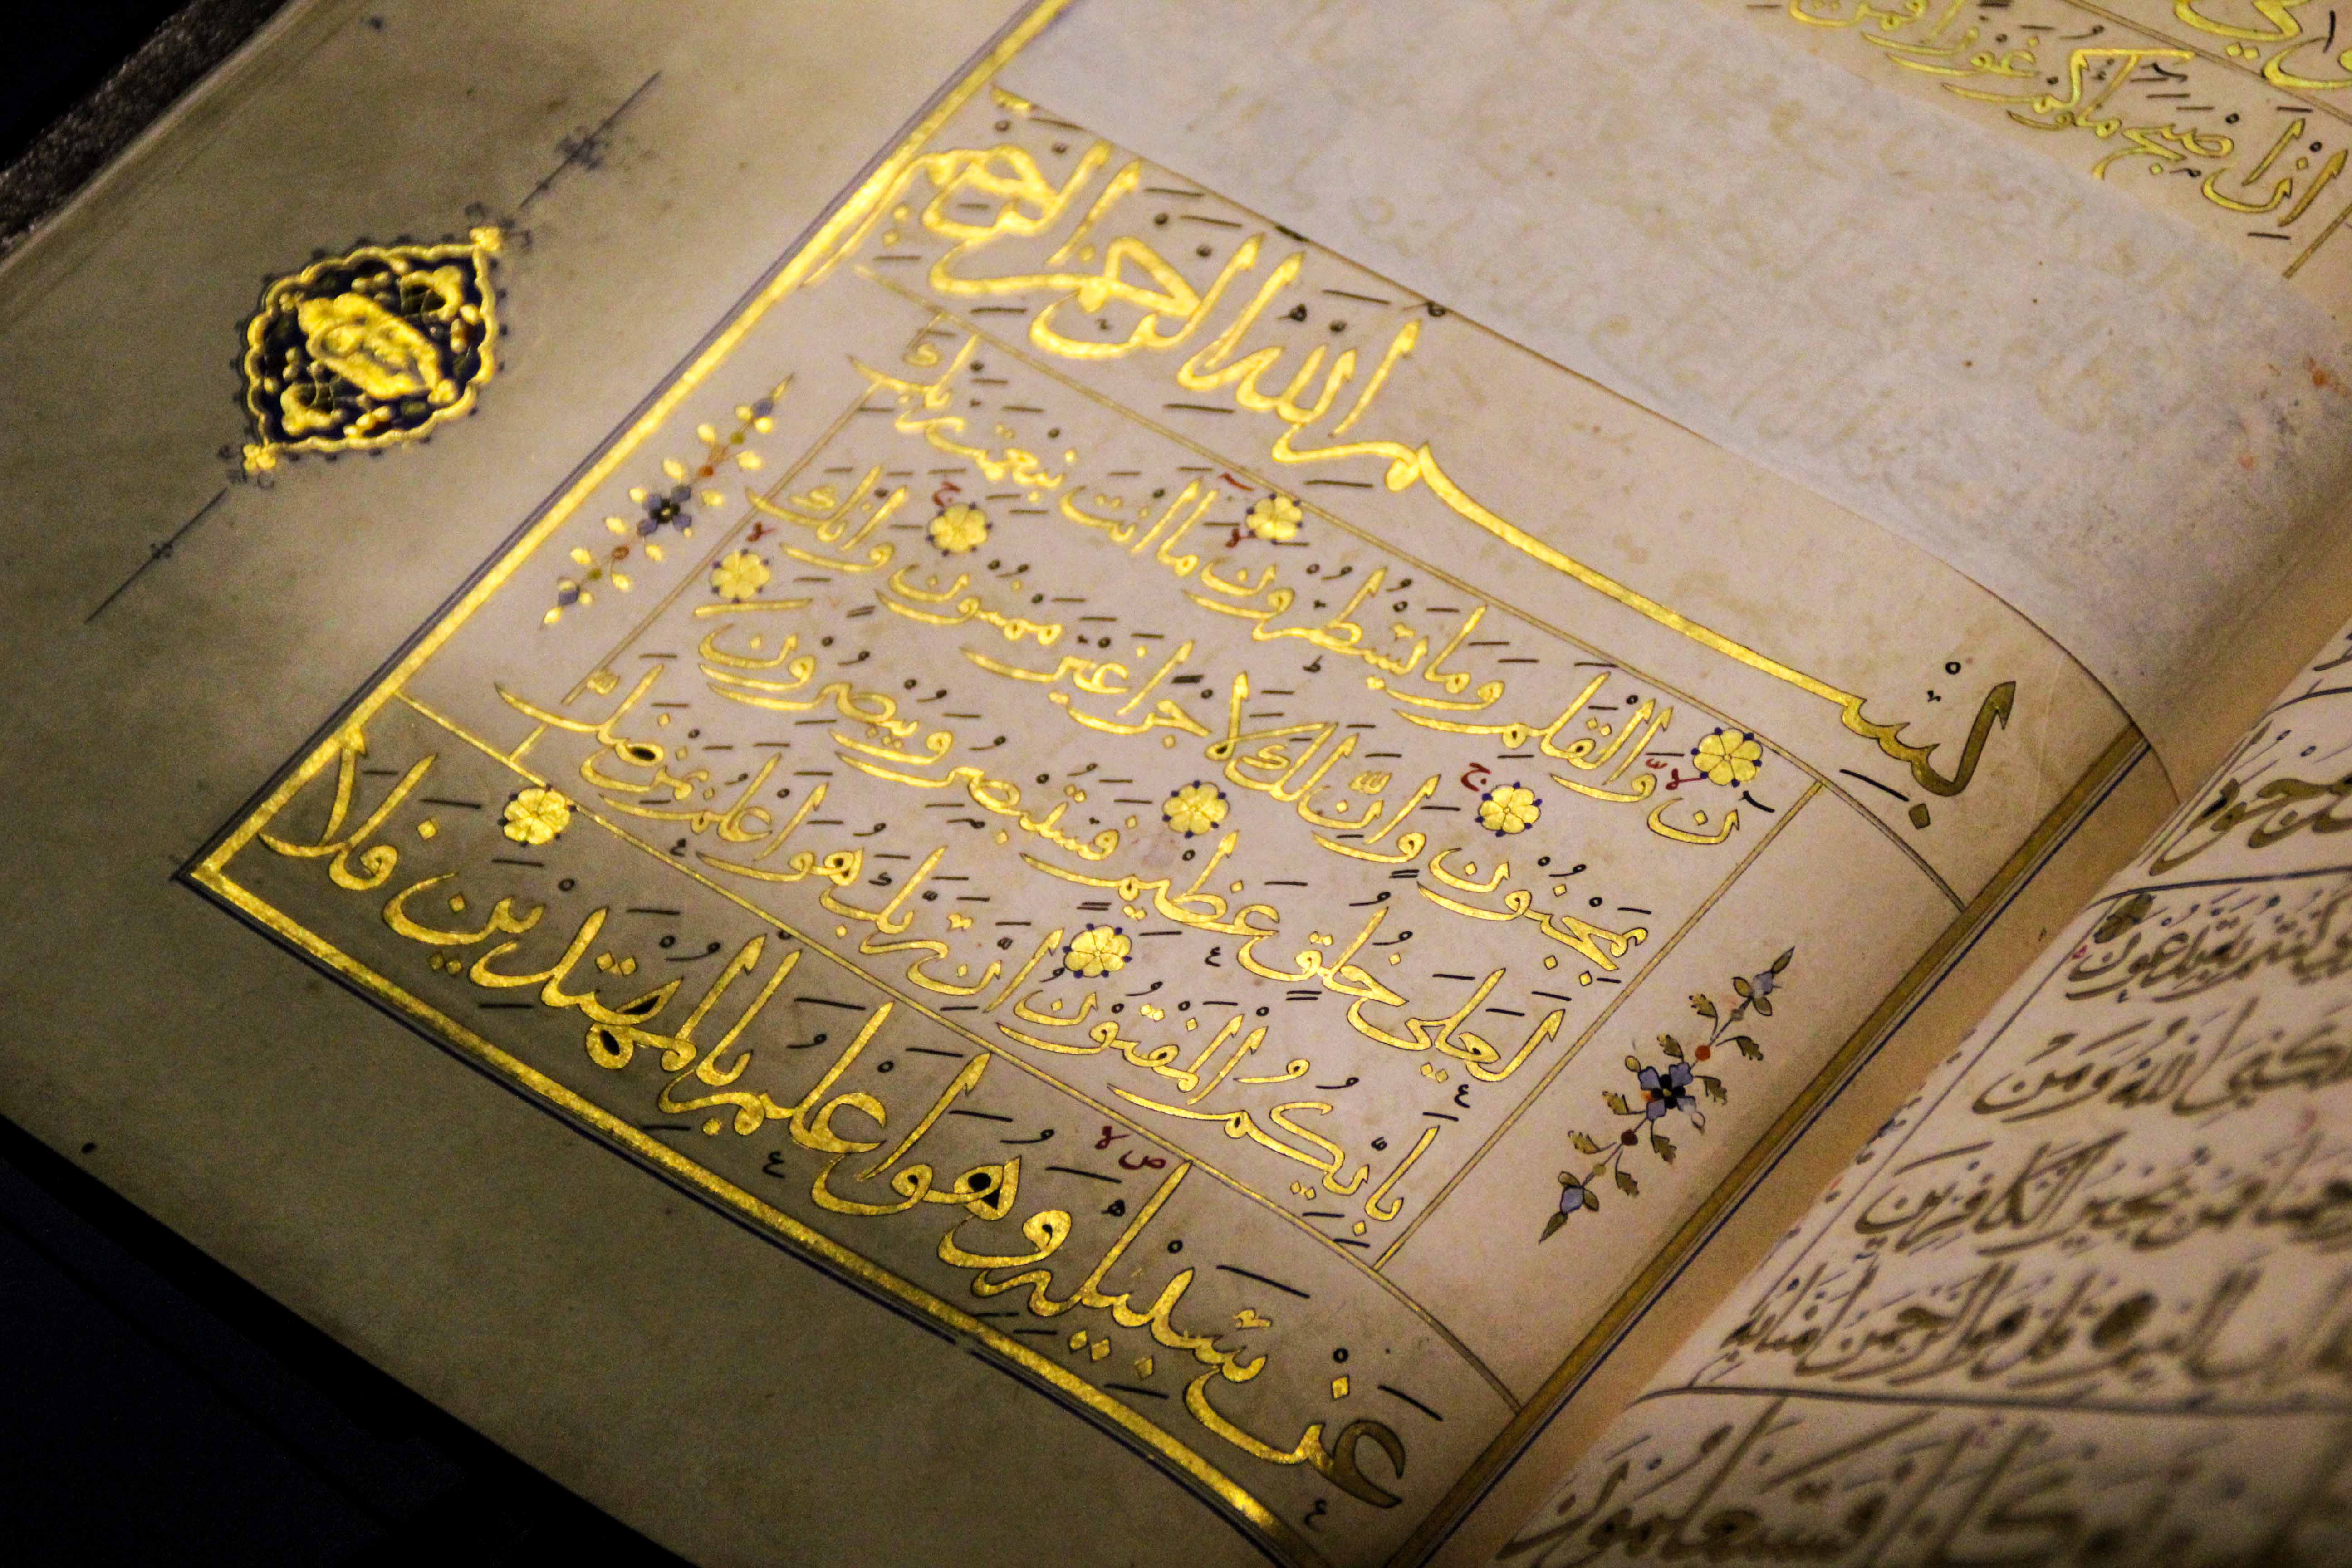 اِنْ اَصْبَحَ مَاؤُكُمْ غَوْرًا فَمَنْ
بِسْمِ اللهِ الرَّحْمٰنِ الرَّحِيْمِ
نۤ وَالْقَلَمِ وَمَا يَسْطُرُوْنَ مَا اَنْتَ بِنِعْمَتِ رَبِّكَ
بِمَجْنُوْنٍ وَاِنَّ لَكَ لَاَجْرًا غَيْرَ مَمْنُوْنٍ وَاِنَّكَ
لَعَلٰى خُلُقٍ عَظِيْمٍ فَسَتُبْصِرُ وَيُبْصِرُوْنَ
بِاَيِّيكُمُ الْمَفْتُوْنُ اِنَّ رَبَّكَ هُوَ اَعْلَمُ بِمَنْ ضَلَّ
عَنْ سَبِيْلِهٖ وَهُوَ اَعْلَمُ بِالْمُهْتَدِيْنَ فَلَا
كُنْتُمْ بِهِ تَدَّعُوْنَ
اللهُ وَمَنْ
فَمَنْ يُجِيْرُ الْكَافِرِيْنَ
قُلْ هُوَ الرَّحْمٰنُ اٰمَنَّا بِهِ
فَسَتَعْلَمُوْنَ